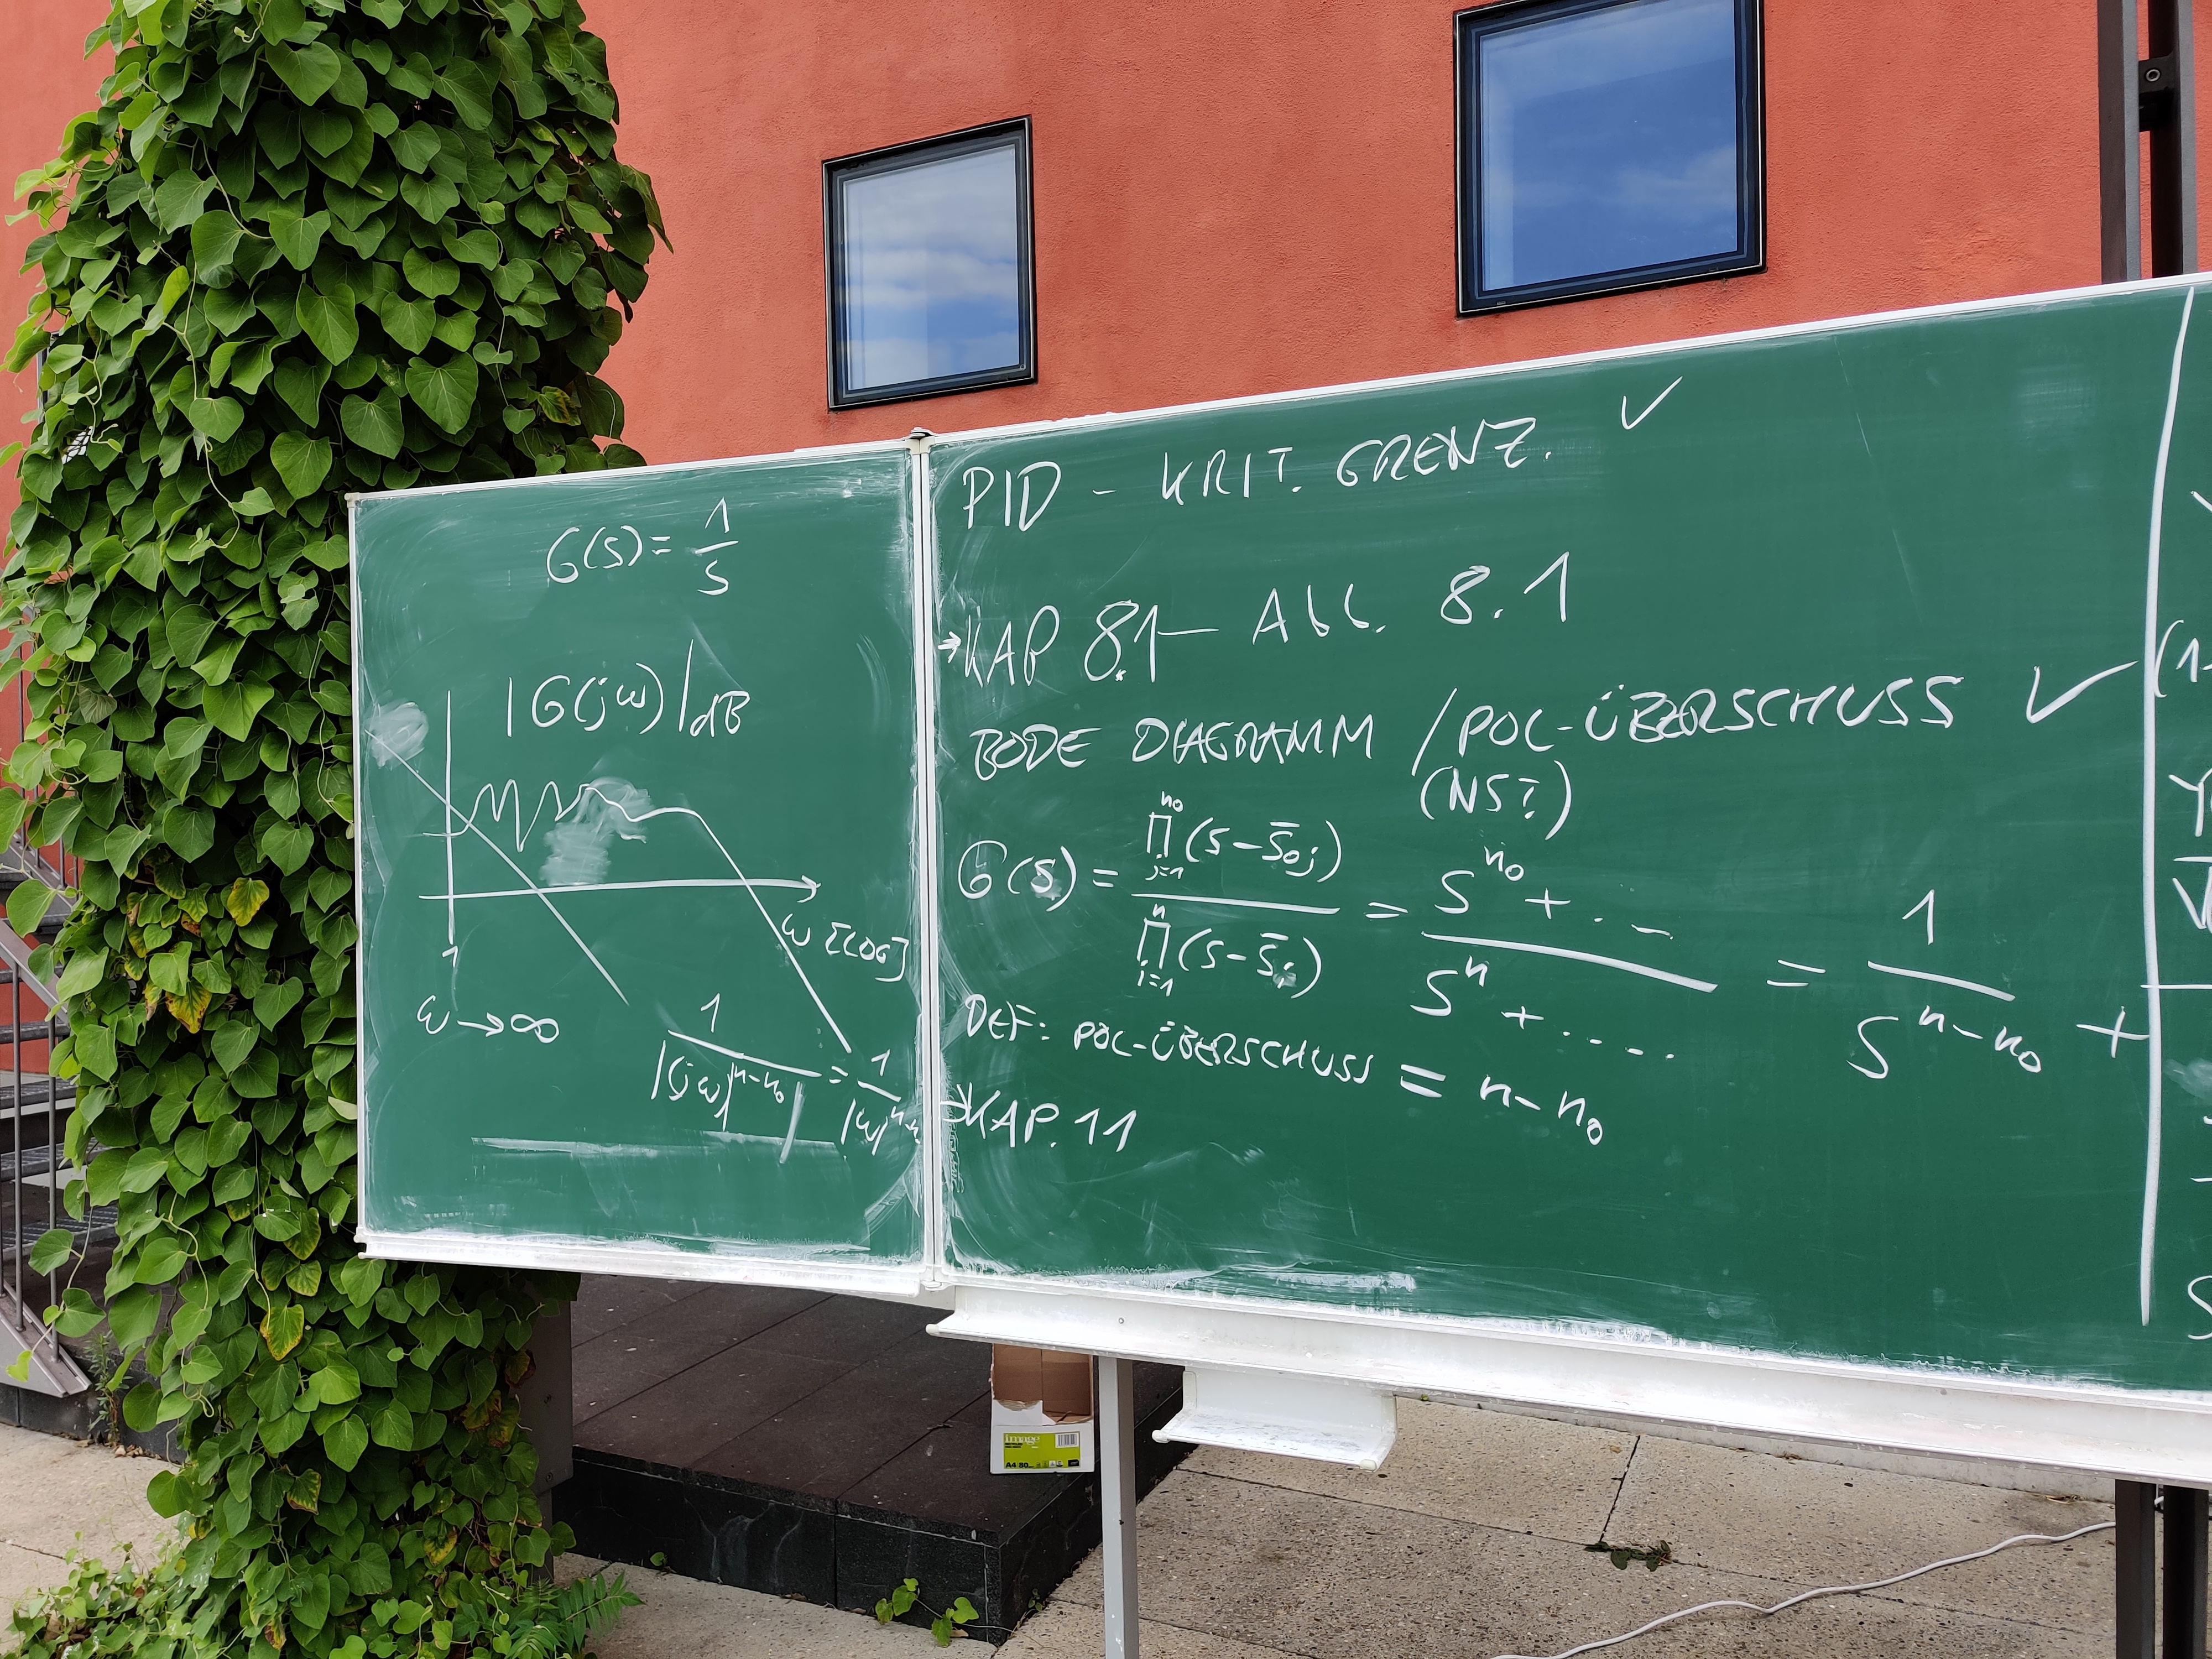 G(s) = 1/s
|G(jω)|dB
ω [LOG]
1
ω → ∞
1/|(jω)^n-n₀| = 1/|ω|^n-n
PID - KRIT. GRENZ. ✓
→ KAP 8.1 - Abb. 8.1
BODE DIAGRAMM / POL-ÜBERSCHUSS ✓
(NS?)
G(s) = ∏_{j=1}^{n₀} (s - s̄₀j) / ∏_{i=1}^{n} (s - s̄i) = s^n₀ + ... / s^n + .... = 1 / s^n-n₀ +
DEF: POL-ÜBERSCHUSS = n - n₀
→ KAP. 11
(1-
Y
image
A4 80